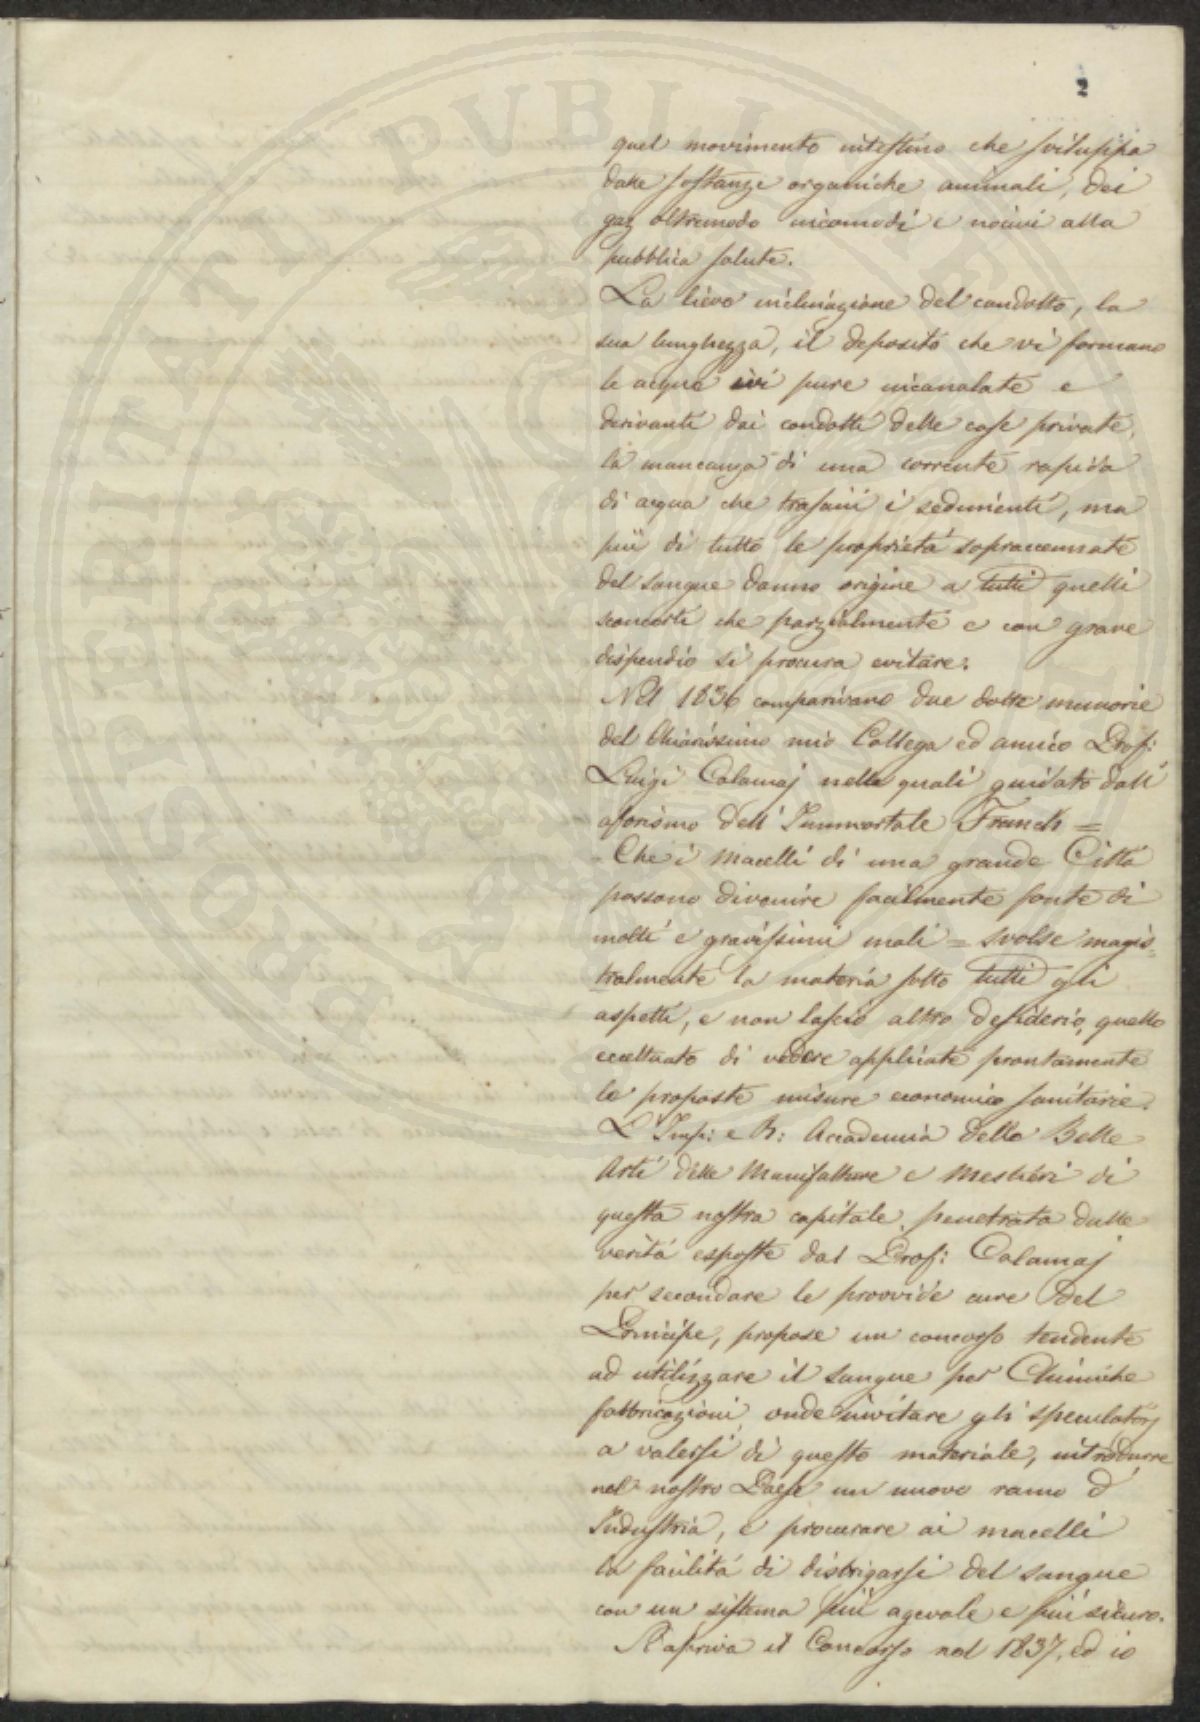 2
quel movimento intestino che sviluppa
dalle sostanze organiche animali, dei
gaz oltremodo incomodi e nocivi alla
pubblica salute.
La lieve inclinazione del condotto, la
sua lunghezza, il deposito che vi formano
le acque ivi pure incanalate e
derivanti dai condotti delle case private,
la mancanza di una corrente rapida
di acqua che trascini i sedimenti, ma
più di tutto le proprietà sopraccennate
del sangue danno origine a tutti quelli
sconcerti che parzialmente e con grave
dispendio si procura evitare.
Nel 1836 comparivano due dotte memorie
del Chiarissimo mio Collega ed amico Prof:
Luigi Calamaj nelle quali guidato dall'
aforismo dell'Immortale Franck =
Che i Macelli di una grande Città
possono divenire facilmente fonte di
molti e gravissimi mali = svolse magis=
tralmente la materia sotto tutti gli
aspetti, e non lasciò altro desiderio, quello
eccettuato di vedere applicate prontamente
le proposte misure economico sanitarie.
L'Imp: e R: Accademia delle Belle
Arti delle Manifatture e Mestieri di
questa nostra capitale, penetrata dalle
verità esposte dal Prof: Calamaj
per secondare le provvide cure del
Principe, propose un concorso tendente
ad utilizzare il sangue per Chimiche
fabbricazioni, onde invitare gli speculatorj
a valersi di questo materiale, introdurre
nel nostro Paese un nuovo ramo d'
Industria, e procurare ai macelli
la facilità di disbrigarsi del sangue
con un sistema più agevole e più sicuro.
S'apriva il Concorso nel 1837, ed io
PROSPERITATI PUBLICAE